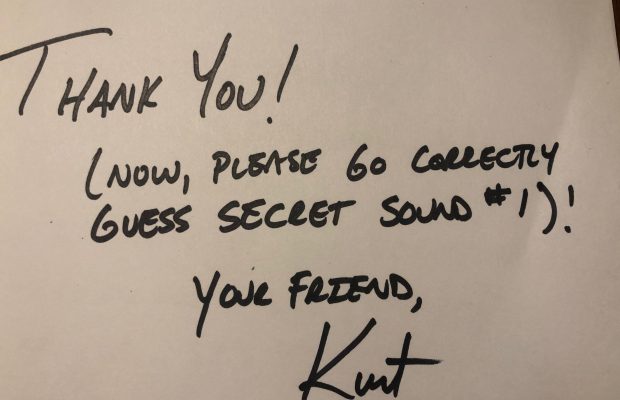 THANK YOU!
(NOW, PLEASE GO CORRECTLY
GUESS SECRET SOUND #1)!
YOUR FRIEND,
Kurt